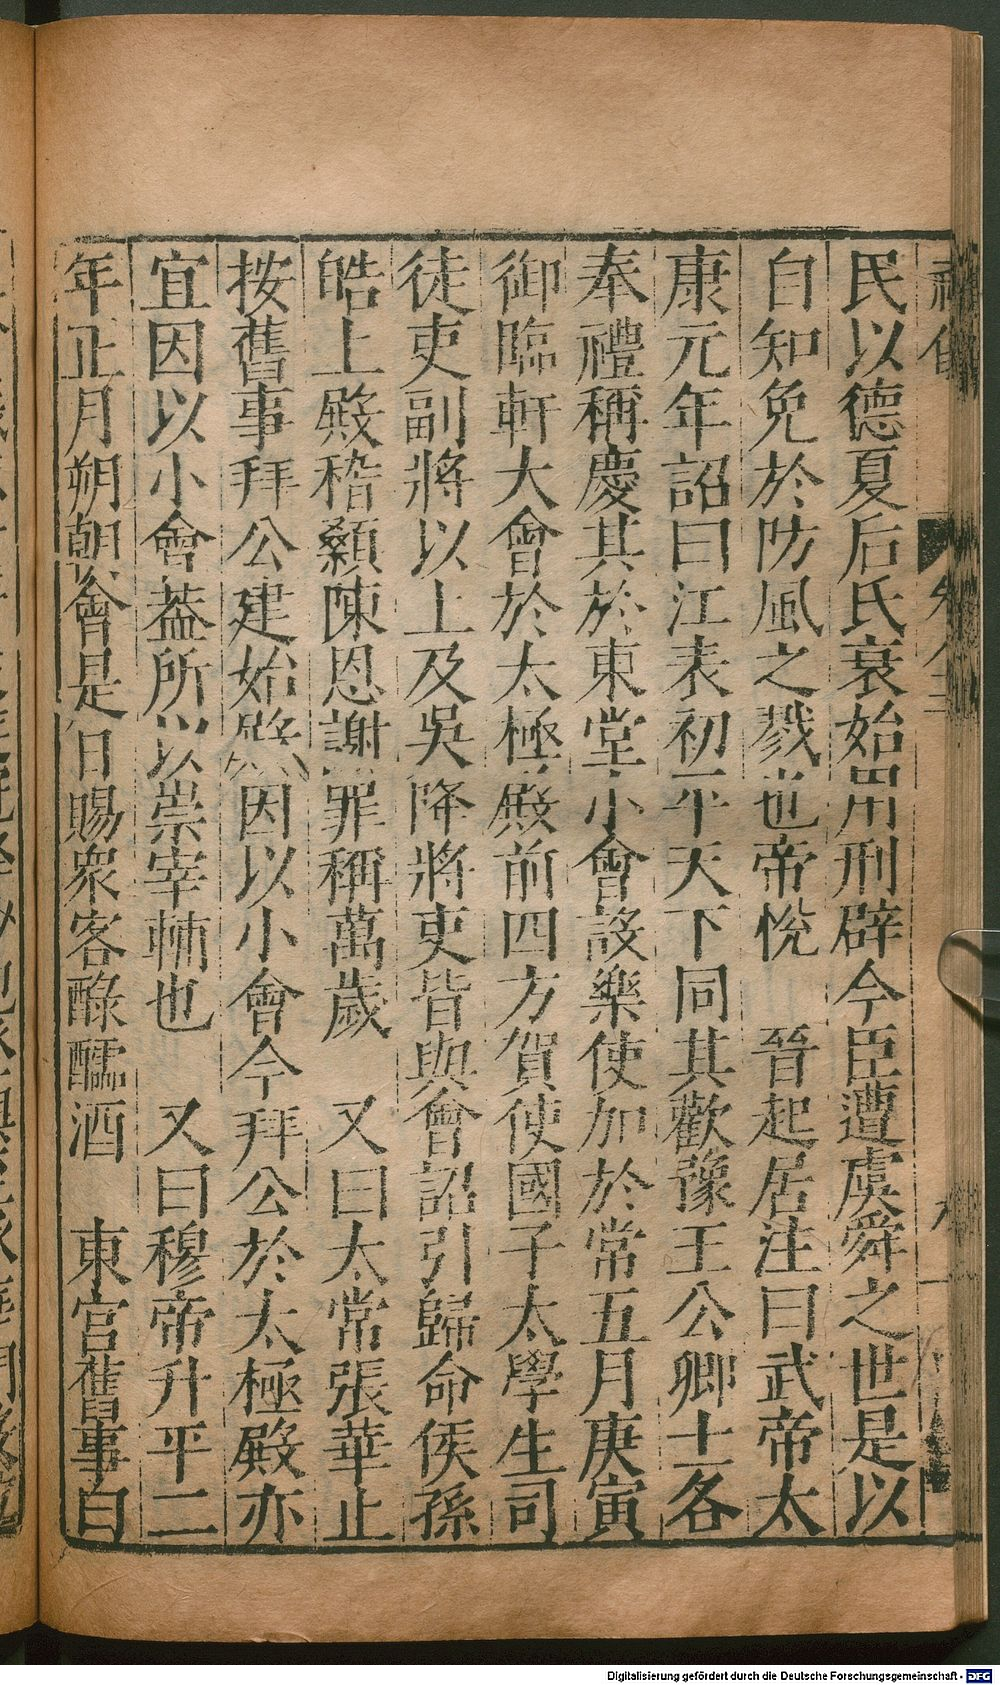 民以德夏后氏衰始用刑辟今臣遭虞舜之世是以
自知免於防風之戮也帝悅　晉起居注曰武帝太
康元年詔曰江表初平天下同其歡豫王公卿士各
奉禮稱慶其於東堂小會設樂使加於常五月庚寅
御臨軒大會於太極殿前四方賀使國子太學生司
徒吏副將以上及吳降將吏皆與會詔引歸命侯孫
皓上殿稽顙陳恩謝罪稱萬歲　又曰太常張華上
按舊事拜公建始殿因以小會今拜公於太極殿亦
宜因以小會蓋所以崇宰輔也　又曰穆帝升平二
年正月朔朝會是日賜衆客醁醽酒　東宮舊事白
Digitalisierung gefördert durch die Deutsche Forschungsgemeinschaft - DFG